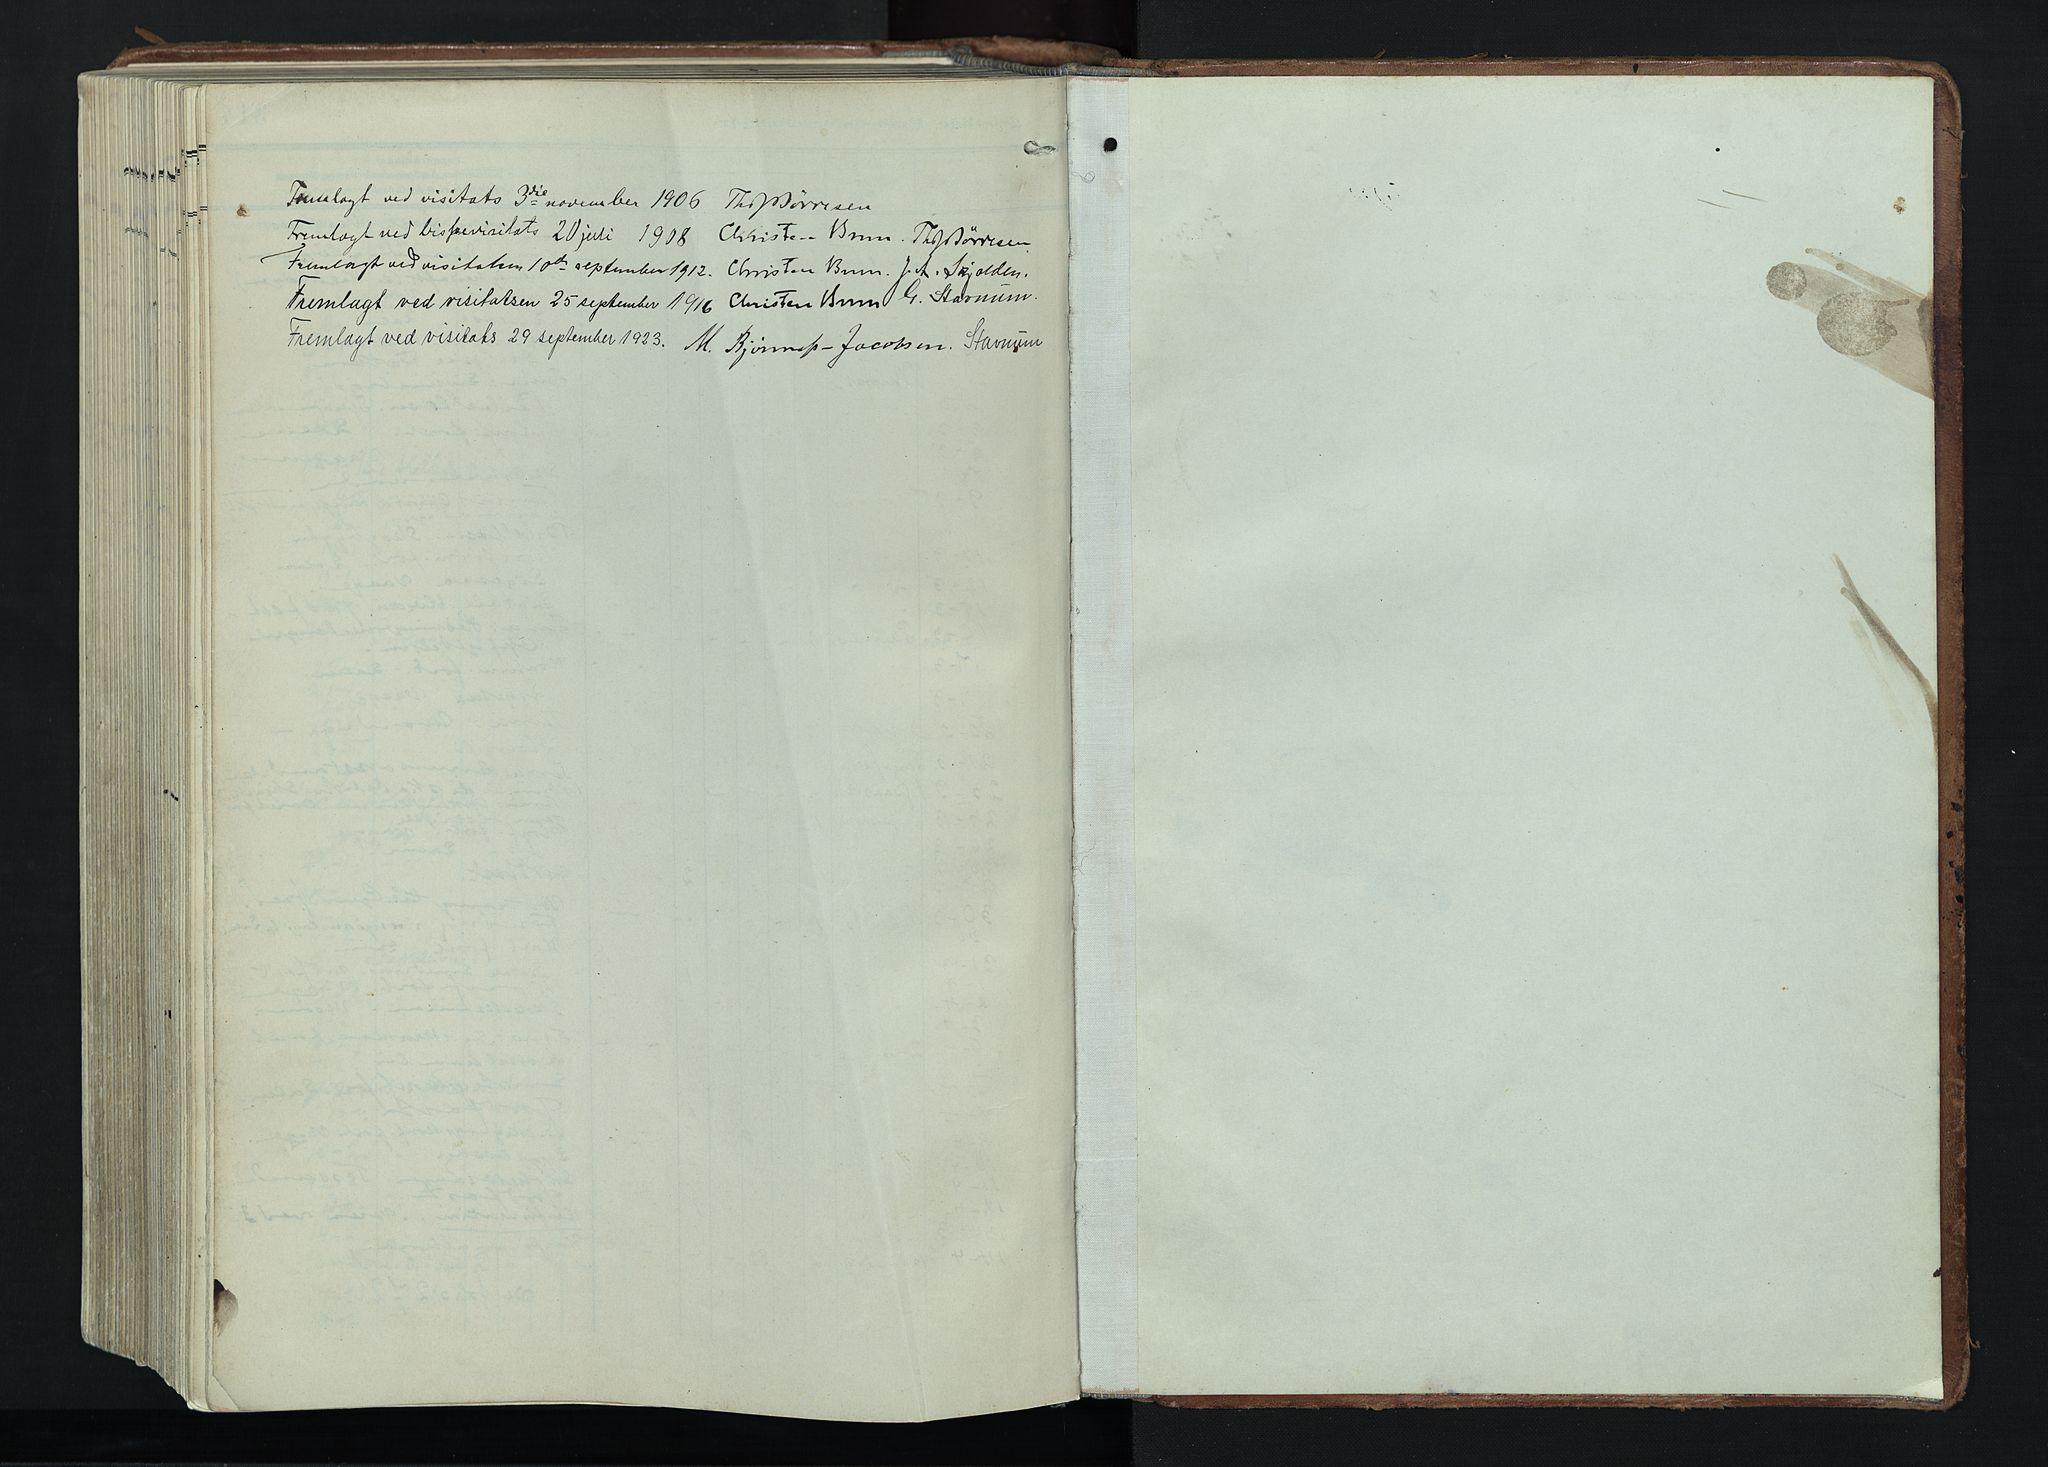 Fremlagt ved visitats 3die november 1906 Th. Børresen
Fremlagt ved bispevisitats 20 juli 1908 Christen Brun. Th. Børresen
Fremlagt ved visitatsen 10de september 1912. Christen Brun. J. A. Skjolden.
Fremlagt ved visitatsen 25 september 1916 Christen Brun G. Stavnum.
Fremlagt ved visitats 29 september 1923. M. Bjønnes-Jacobsen. Stavnum